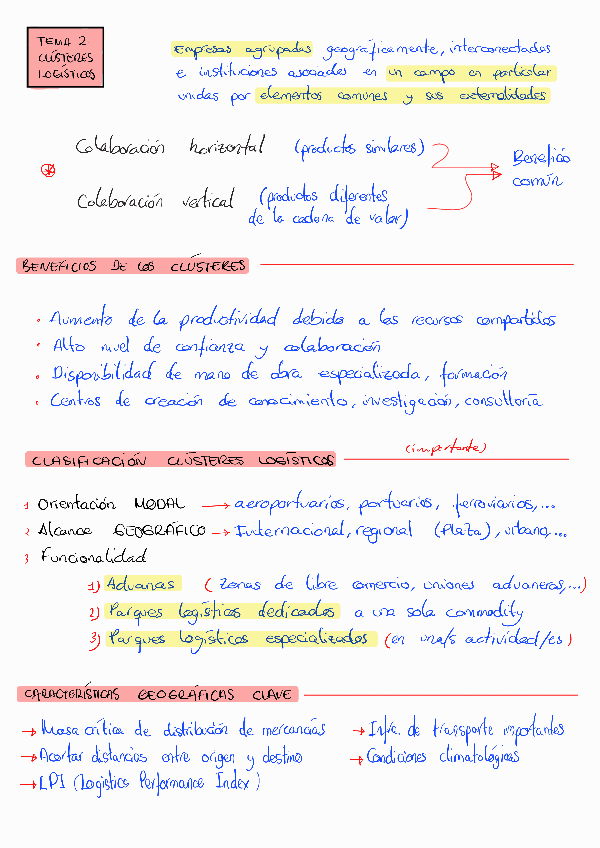 TEMA 2
CLÚSTERES
LOGÍSTICOS
Empresas agrupadas geográficamente, interconectadas
e instituciones asociadas en un campo en particular
unidas por elementos comunes y sus externalidades
Colaboración horizontal (productos similares)
Beneficio
común
Colaboración vertical (productos diferentes
de la cadena de valor)
BENEFICIOS DE LOS CLÚSTERES
· Aumento de la productividad debido a los recursos compartidos
· Alto nivel de confianza y colaboración
· Disponibilidad de mano de obra especializada, formación
· Centros de creación de conocimiento, investigación, consultoría
(importante)
CLASIFICACIÓN CLÚSTERES LOGÍSTICOS
1 Orientación MODAL → aeroportuarios, portuarios, ferroviarios,...
2 Alcance GEOGRÁFICO → Internacional, regional (Plaza), urbano...
3 Funcionalidad
1) Aduanas (zonas de libre comercio, uniones aduaneras,...)
2) Parques logísticos dedicados a una sola commodity
3) Parques logísticos especializados (en una/s actividad/es)
CARACTERÍSTICAS GEOGRÁFICAS CLAVE
→ Masa crítica de distribución de mercancías
→ Infra. de transporte importantes
→ Acortar distancias entre origen y destino
→ Condiciones climatológicas
→ LPI (Logistics Performance Index)